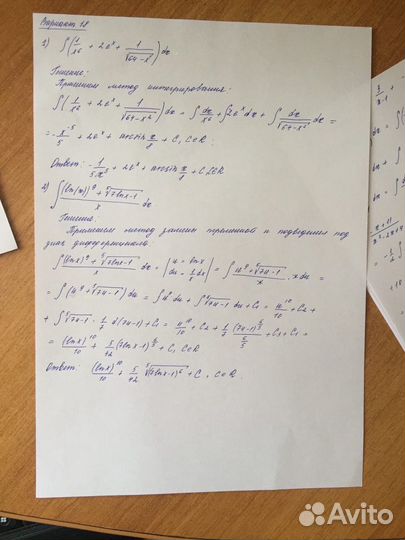 Вариант 18
1) ∫(1/x⁶ + 2eˣ + 1/√(64-x²))dx
Решение:
Применим метод интегрирования:
∫(1/x⁶ + 2eˣ + 1/√(64-x²))dx = ∫dx/x⁶ + ∫2eˣdx + ∫dx/√(64-x²) dx =
= -x⁻⁵/5 + 2eˣ + arcsin x/8 + C, C∈R.
Ответ: -1/5x⁵ + 2eˣ + arcsin x/8 + C, C∈R
2) ∫((ln(x))⁹ + ⁵√(7lnx-1))/x dx
Решение:
Применим метод замены переменной и подведения под
знак дифференциала.
∫((lnx)⁹ + ⁵√(7lnx-1))/x dx = |u = lnx, du = 1/x dx| = ∫(u⁹ + ⁵√(7u-1))/x · x du =
= ∫(u⁹ + ⁵√(7u-1))du = ∫u⁹du + ∫⁵√(7u-1) du + C₁ = u¹⁰/10 + C₂ +
+ ∫⁵√(7u-1) · 1/7 d(7u-1) + C₁ = u¹⁰/10 + C₂ + 1/7 (7u-1)^(6/5)/(6/5) + C₃ + C₁ =
= (lnx)¹⁰/10 + 5/42 (7lnx-1)^(6/5) + C, C∈R
Ответ: (lnx)¹⁰/10 + 5/42 ⁵√(7lnx-1)⁶ + C, C∈R.
Avito